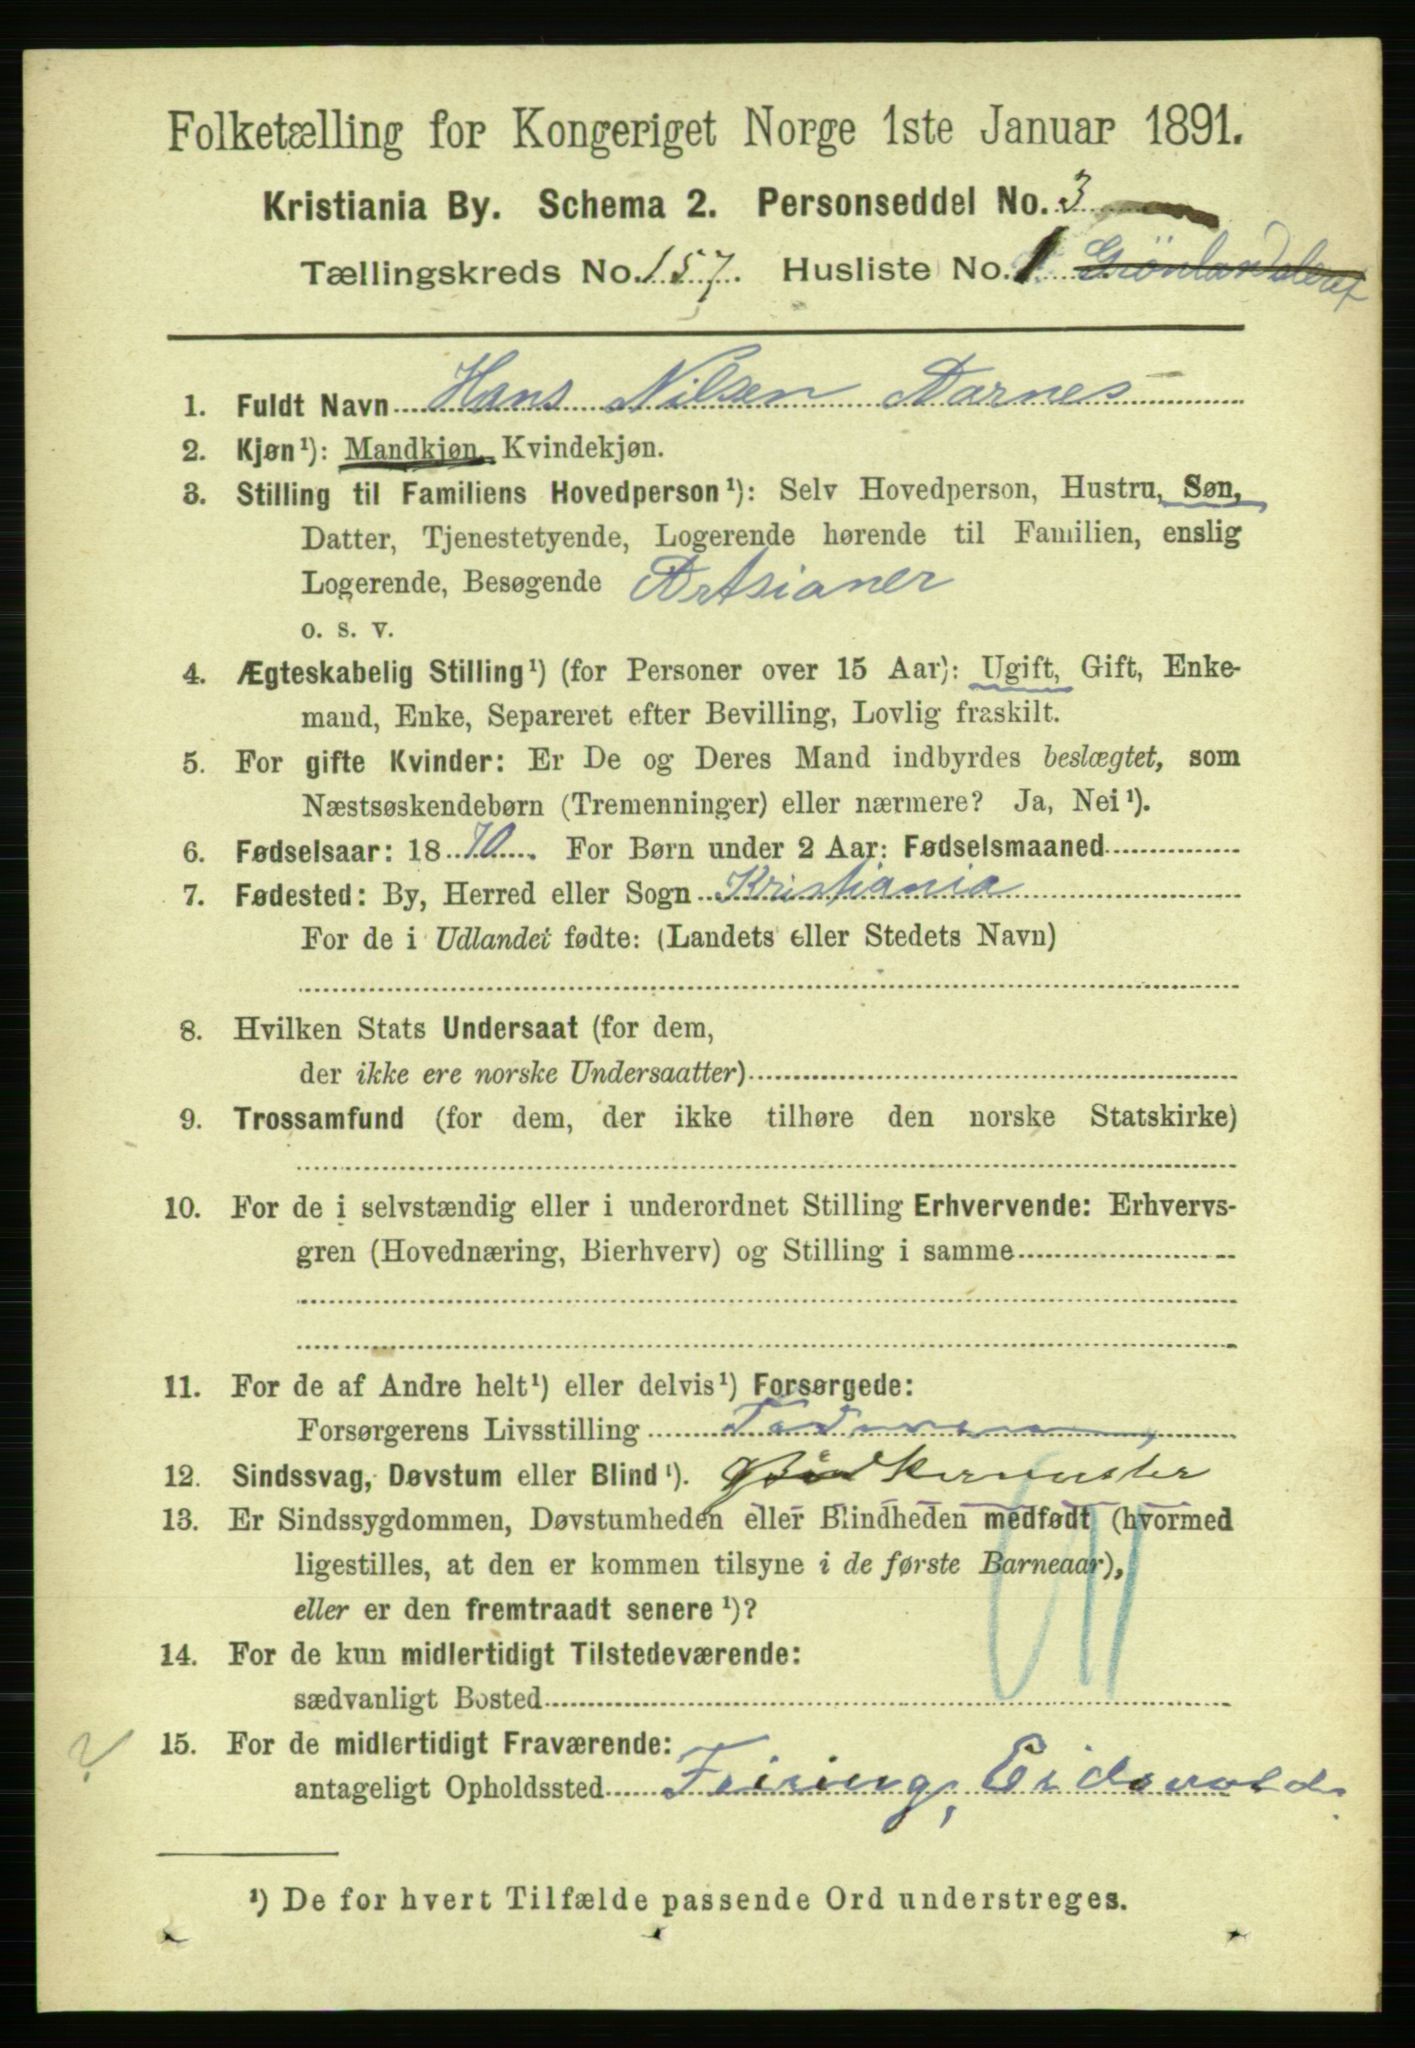 Folketælling for Kongeriget Norge 1ste Januar 1891.
Kristiania By. Schema 2. Personseddel No. 3
Tællingskreds No. 157. Husliste No. 1
1. Fuldt Navn Hans Nilsen Aarnes
2. Kjøn¹): Mandkjøn, Kvindekjøn.
3. Stilling til Familiens Hovedperson¹): Selv Hovedperson, Hustru, Søn,
Datter, Tjenestetyende, Logerende hørende til Familien, enslig
Logerende, Besøgende Artsianer
o. s. v.
4. Ægteskabelig Stilling¹) (for Personer over 15 Aar): Ugift, Gift, Enke-
mand, Enke, Separeret efter Bevilling, Lovlig fraskilt.
5. For gifte Kvinder: Er De og Deres Mand indbyrdes beslægtet, som
Næstsøskendebørn (Tremenninger) eller nærmere? Ja, Nei¹).
6. Fødselsaar: 1870. For Børn under 2 Aar: Fødselsmaaned
7. Fødested: By, Herred eller Sogn Kristiania
For de i Udlandet fødte: (Landets eller Stedets Navn)
8. Hvilken Stats Undersaat (for dem,
der ikke ere norske Undersaatter)
9. Trossamfund (for dem, der ikke tilhøre den norske Statskirke)
10. For de i selvstændig eller i underordnet Stilling Erhvervende: Erhvervs-
gren (Hovednæring, Bierhverv) og Stilling i samme
11. For de af Andre helt¹) eller delvis¹) Forsørgede:
Forsørgerens Livsstilling
12. Sindssvag, Døvstum eller Blind¹).
13. Er Sindssygdommen, Døvstumheden eller Blindheden medfødt (hvormed
ligestilles, at den er kommen tilsyne i de første Barneaar),
eller er den fremtraadt senere¹)?
14. For de kun midlertidigt Tilstedeværende:
sædvanligt Bosted
15. For de midlertidigt Fraværende:
antageligt Opholdssted Feiring, Eidsvold.
¹) De for hvert Tilfælde passende Ord understreges.